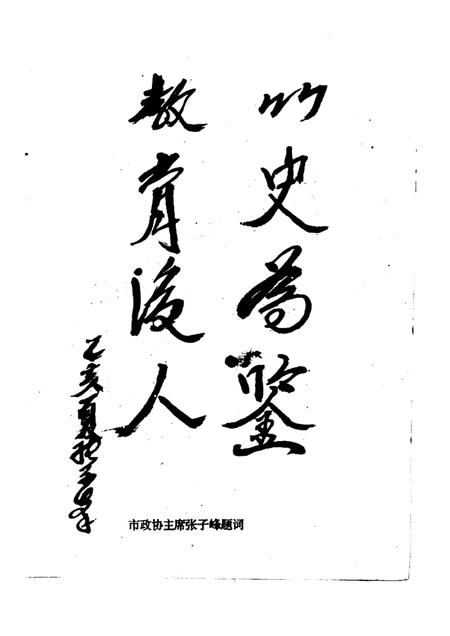 以史為鉴
教育後人
乙亥夏张子峰
市政协主席张子峰题词